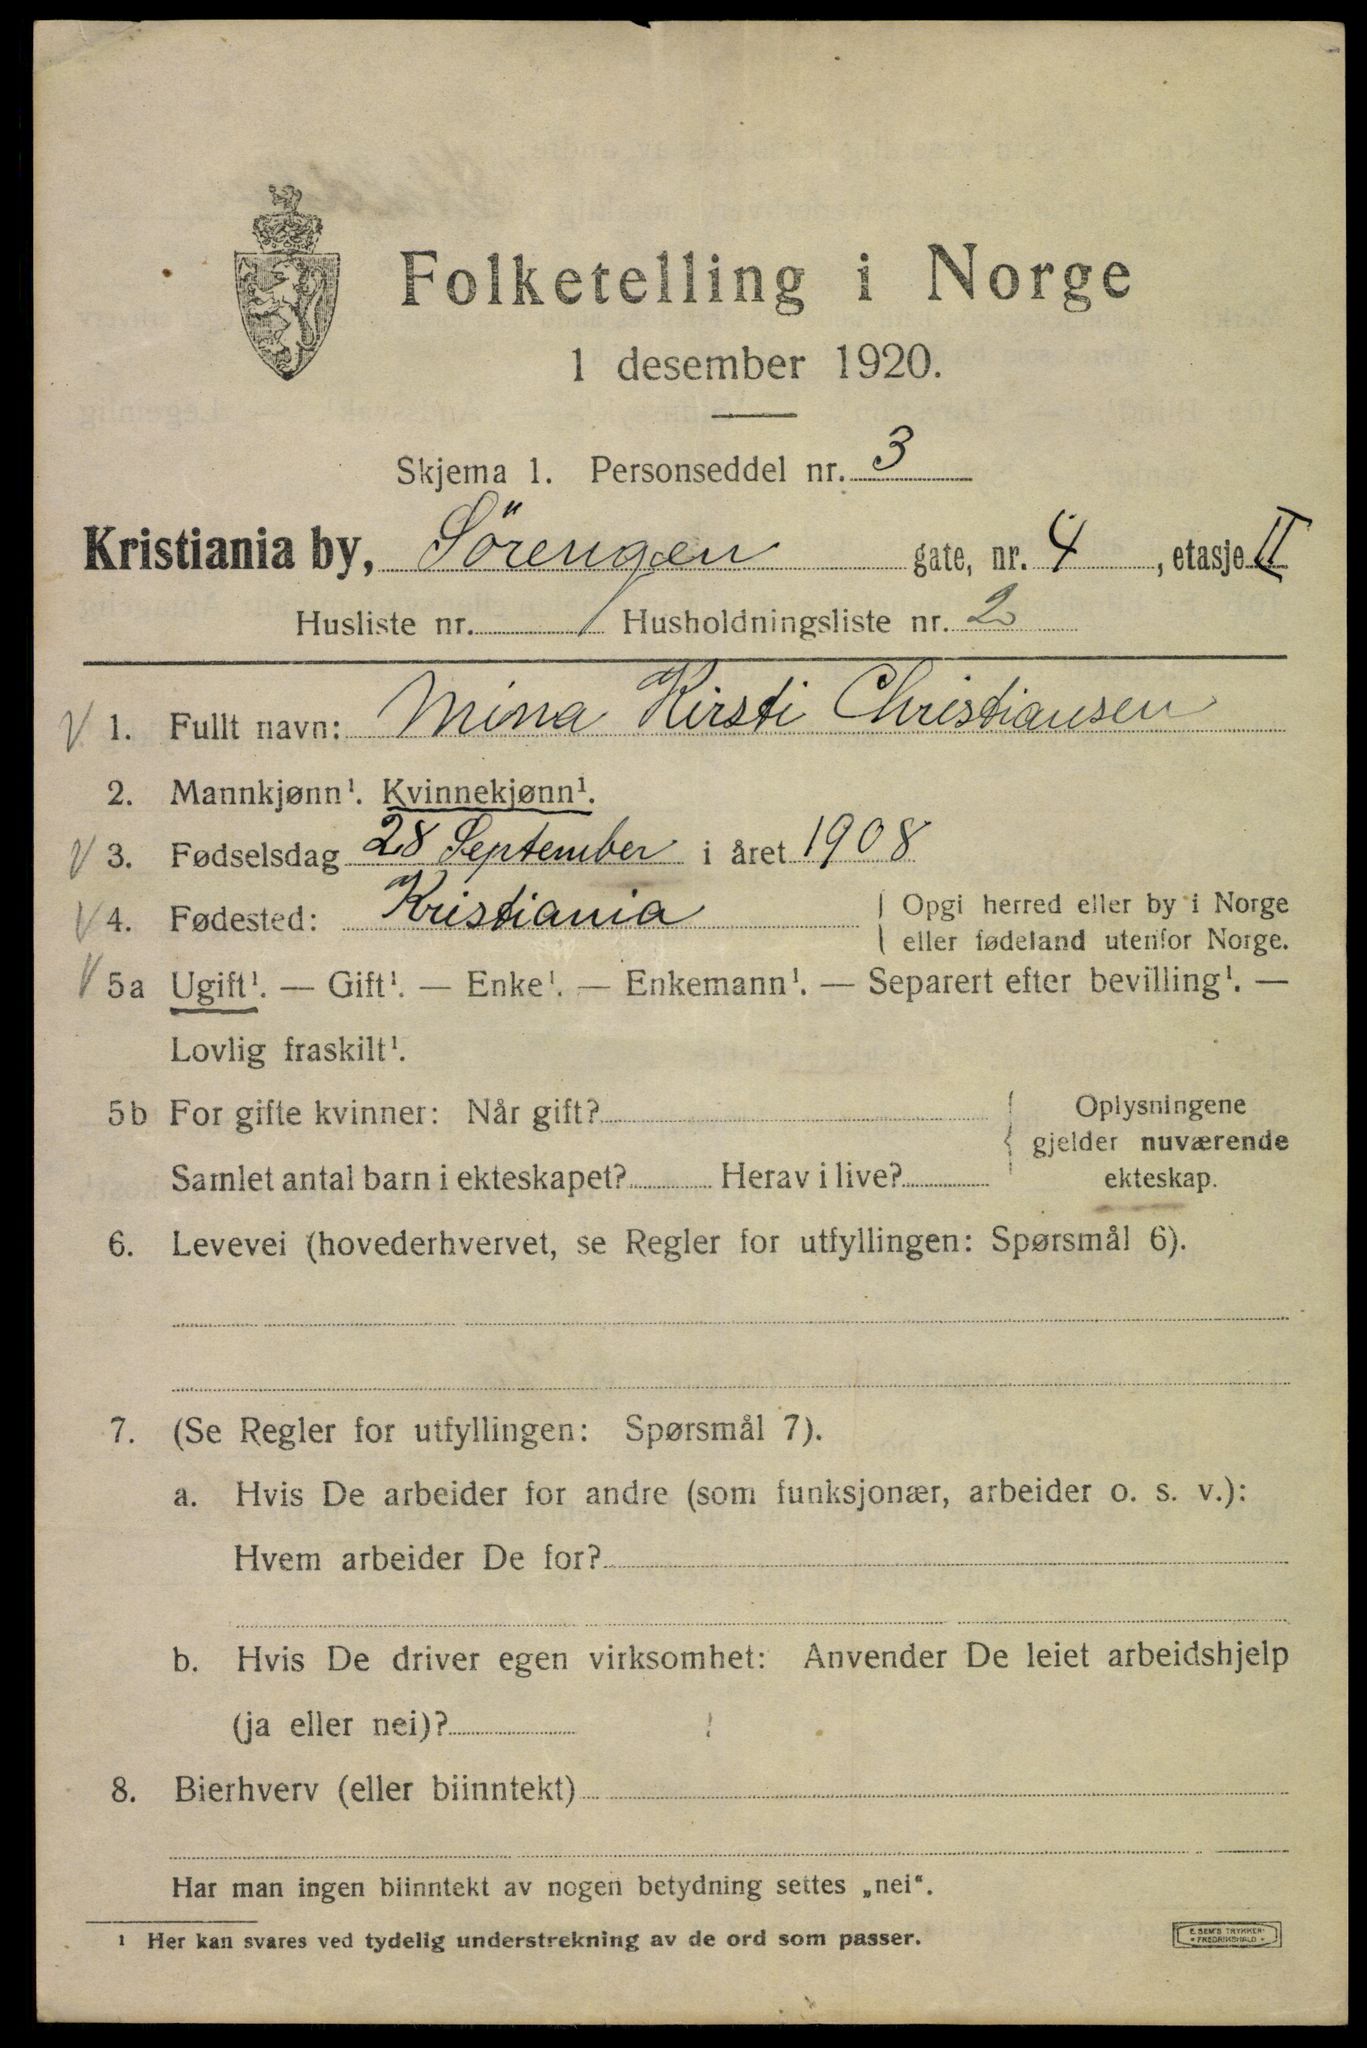 Folketelling i Norge
1 desember 1920.
Skjema 1. Personseddel nr. 3
Kristiania by, Sörengen gate, nr. 4, etasje II
Husliste nr. 1 Husholdningsliste nr. 2
1. Fullt navn: Mina Kirsti Christiansen
2. Mannkjønn¹. Kvinnekjønn¹.
3. Fødselsdag 28 September i året 1908
4. Fødested: Kristiania Opgi herred eller by i Norge
eller fødeland utenfor Norge.
5a Ugift¹. — Gift¹. — Enke¹. — Enkemann¹. — Separert efter bevilling¹. —
Lovlig fraskilt¹.
5b For gifte kvinner: Når gift? Oplysningene
gjelder nuværende
Samlet antal barn i ekteskapet? Herav i live? ekteskap.
6. Levevei (hovederhvervet, se Regler for utfyllingen: Spørsmål 6).
7. (Se Regler for utfyllingen: Spørsmål 7).
a. Hvis De arbeider for andre (som funksjonær, arbeider o. s. v.):
Hvem arbeider De for?
b. Hvis De driver egen virksomhet: Anvender De leiet arbeidshjelp
(ja eller nei)?
8. Bierhverv (eller biinntekt)
Har man ingen biinntekt av nogen betydning settes „nei“.
¹ Her kan svares ved tydelig understrekning av de ord som passer.
E. SEM'S TRYKKERI
FREDRIKSHALD